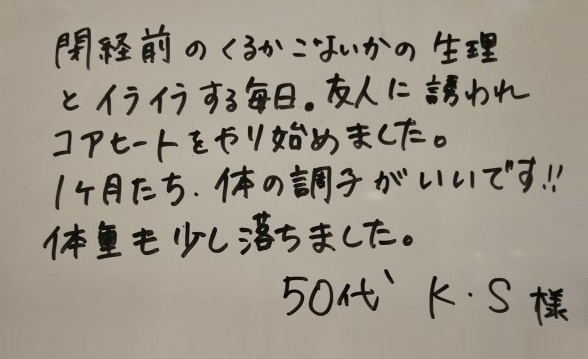 閉経前のくるかこないかの生理
とイライラする毎日。友人に誘われ
コアヒートをやり始めました。
1ヶ月たち、体の調子がいいです!!
体重も少し落ちました。
50代 K・S 様